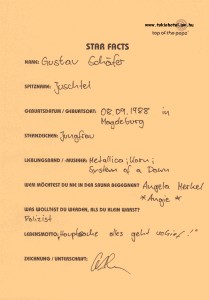 www.tokiohotel.uw.hu
top of the pops
STAR FACTS
NAME: Gustav Schäfer
SPITZNAME: Juschtel
GEBURTSDATUM / GEBURTSORT: 08.09.1988 in
Magdeburg
STERNZEICHEN: Jungfrau
LIEBLINGSBAND / -MUSIKER: Metallica; Korn;
System of a Down
WEN MÖCHTEST DU IN DER SAUNA BEGEGNEN? Angela Merkel
*Angie*
WAS WOLLTEST DU WERDEN, ALS DU KLEIN WARST?
Polizist
LEBENSMOTTO: „Hauptsache alles geht
ZEICHNUNG / UNTERSCHRIFT: